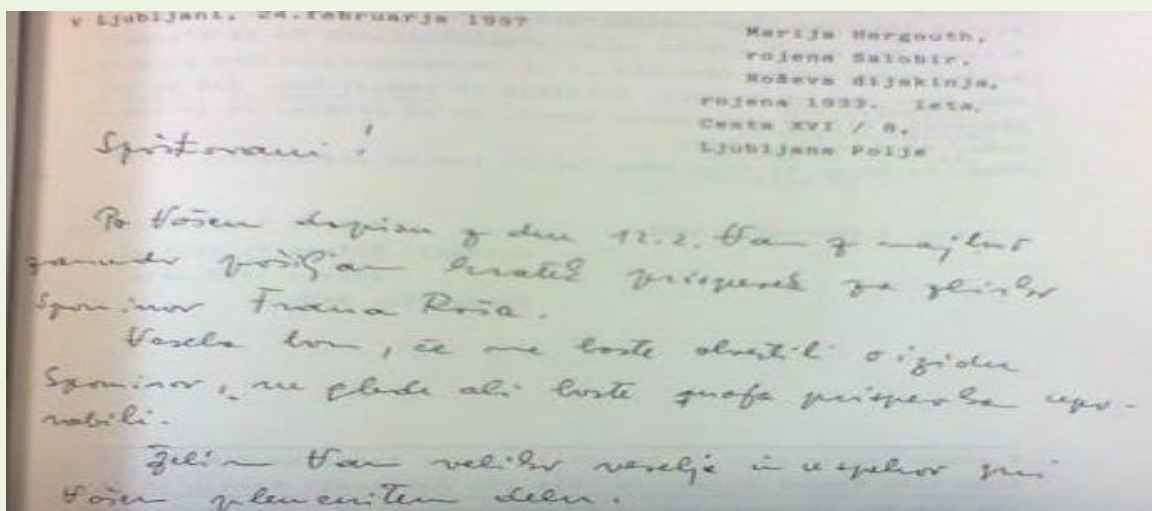 v Ljubljani, 24.februarja 1997
Marija Hergouth,
rojena Salobir,
Roševa dijakinja,
rojena 1933. leta.
Cesta XVI / 8,
Ljubljana Polje
Spoštovani!
Po Vašem dopisu z dne 12.2. Vam z majhno
zamudo pošiljam kratek prispevek za zbirko
Spominov Frana Roša.
Vesela bom, če me boste obvestili o izidu
Spominov, ne glede ali boste mojega prispevka upo-
rabili.
Želim Vam veliko veselja in uspehov pri
Vašem plemenitem delu.